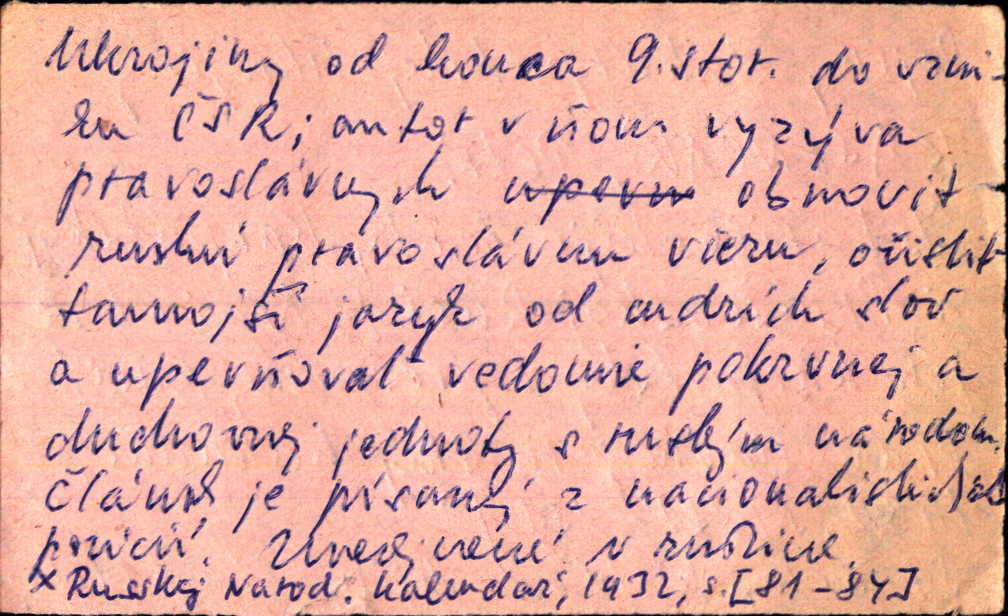 Ukrajiny od konca 9. stor. do vzni-
ku ČSR; autor v ňom vyzýva
pravoslávnych upevn obnoviť
ruskú pravoslávnu vieru, očistiť
tamojší jazyk od cudzích slov
a upevňovať vedomie pokrvnej a
duchovnej jednoty s ruským národom.
Článok je písaný z nacionalistických
pozícií. Uverejnené v ruštine
x Russkij Narod. Kalendar, 1932, s. [81-84]